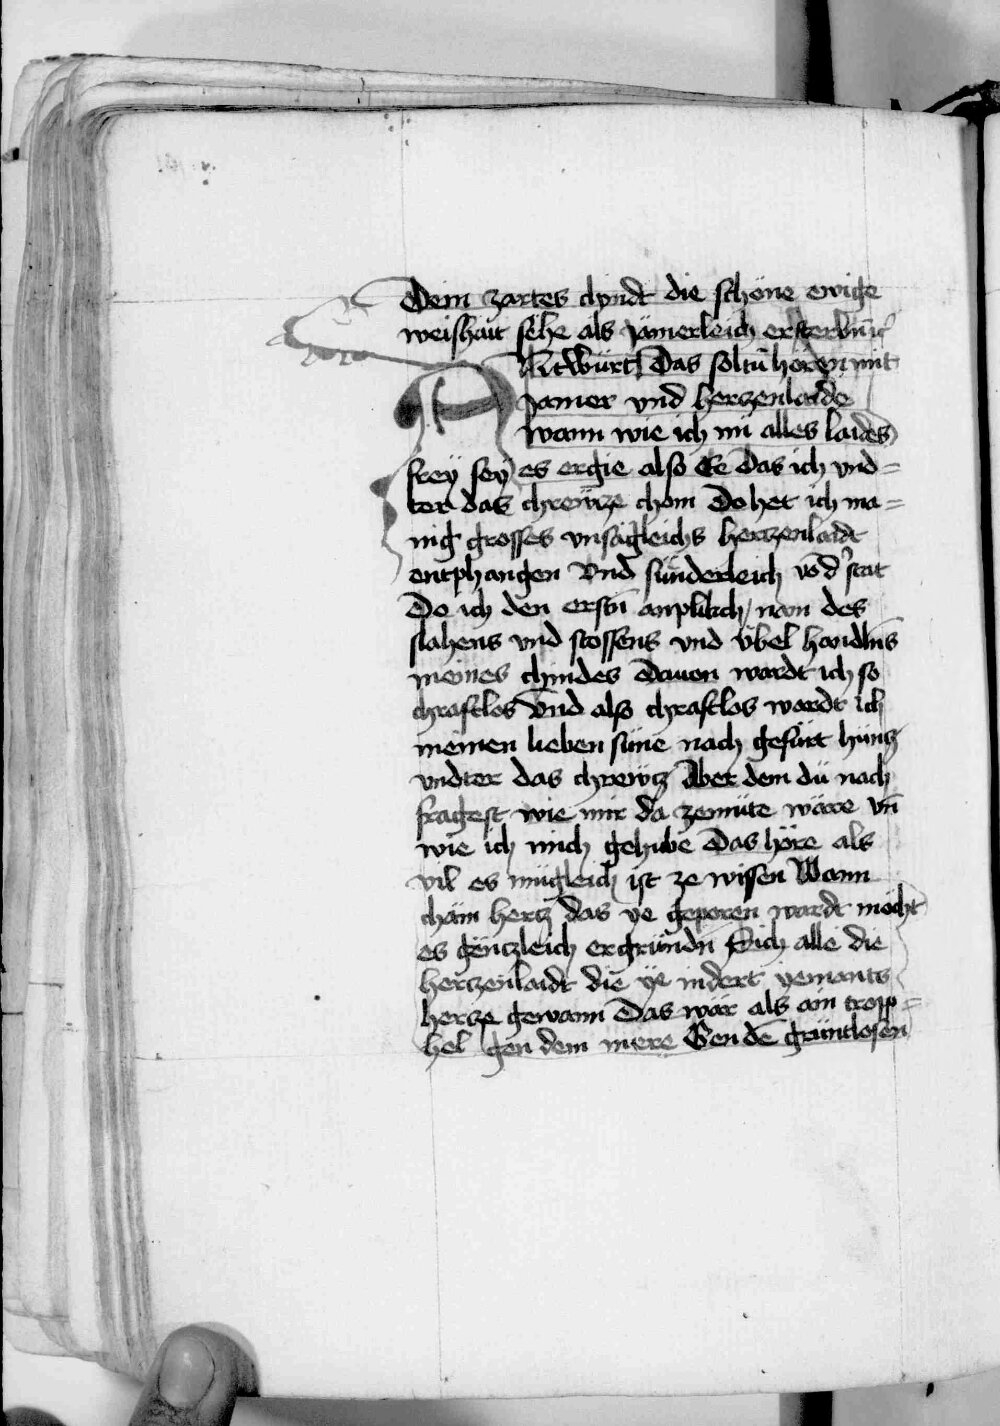 Dein zartes chindt die schöne ewige
weishait sëhe als Jämerleich ersterbnn̄
Antwürt Das soltü hören mit
Jamer vnd herczenlaide
wann wie ich nü alles laides
freÿ seÿ es ergie also Ee Das ich vnd=
ter das chrewcze chom Do het ich ma=
nig grosses vnsägleichs herczenlaidt
entphangen Vnd sünderleich vō d' stat
Do ich den erstn̄ anplikch nam des
slahens vnd stossens vnd übel handlns
meines chindes Dauon wardt ich so
chraftlos Vnd also chraftlos wardt ich
meinen lieben süne nach gefürt hüntz
vndter das chrewtz Aber dem dü nach
fragest wie mir da zemüte wäre vn̄
wie ich mich gehube Das höre als
vil es mügleich ist ze wissen Wann
chain hertz das ye geporen wardt möcht
es gëntzleich ergründn̄ Sich alle die
herczenlaidt die ye indert yemants
hercze gewann Das wär als ain tropp=
hel gen dem mere Gen dē grüntlosen